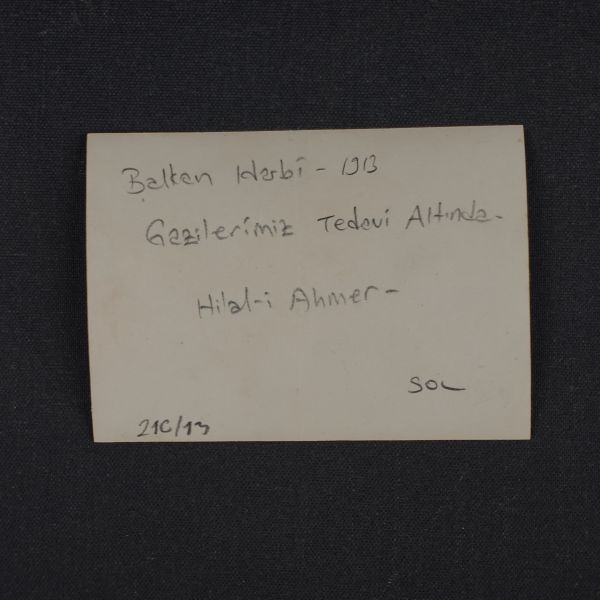 Balkan Harbi - 1913
Gazilerimiz Tedavi Altında -
Hilal-i Ahmer -
SOL
21C/13